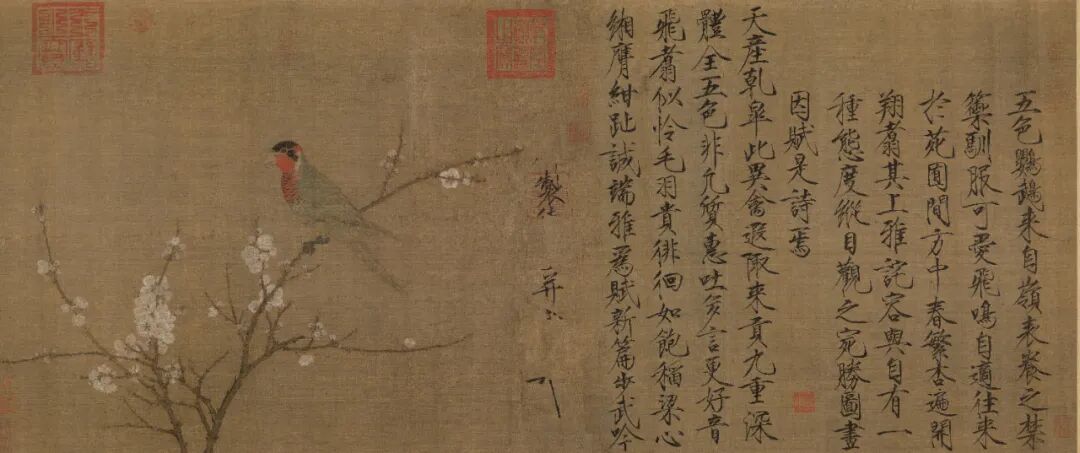 五色鸚鵡来自嶺表養之禁
籞馴服可愛飛鳴自適往来
於苑囿間方中春繁杏遍開
翔翥其上雅詫容與自有一
種態度縱目觀之宛勝圖畫
因賦是詩焉
天產乾皋此異禽遐陬来貢九重深
體全五色非凡質惠吐多言更好音
飛翥似憐毛羽貴徘徊如飽稻粱心
緗膺紺趾誠端雅為賦新篇步武吟
製
并